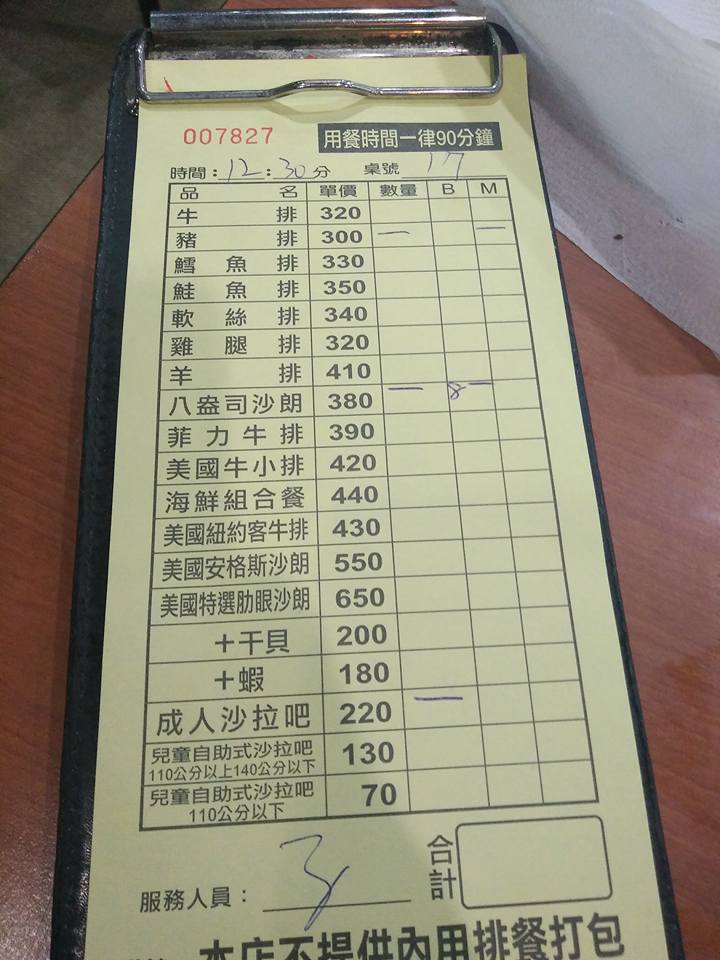 007827 用餐時間一律90分鐘
時間：12：30分 桌號 17
品名 單價 數量 B M
牛排 320
豬排 300 一 一
鱈魚排 330
鮭魚排 350
軟絲排 340
雞腿排 320
羊排 410
八盎司沙朗 380 一 8 一
菲力牛排 390
美國牛小排 420
海鮮組合餐 440
美國紐約客牛排 430
美國安格斯沙朗 550
美國特選肋眼沙朗 650
＋干貝 200
＋蝦 180
成人沙拉吧 220 一
兒童自助式沙拉吧 130
110公分以上140公分以下
兒童自助式沙拉吧 70
110公分以下
服務人員： 合計
本店不提供內用排餐打包